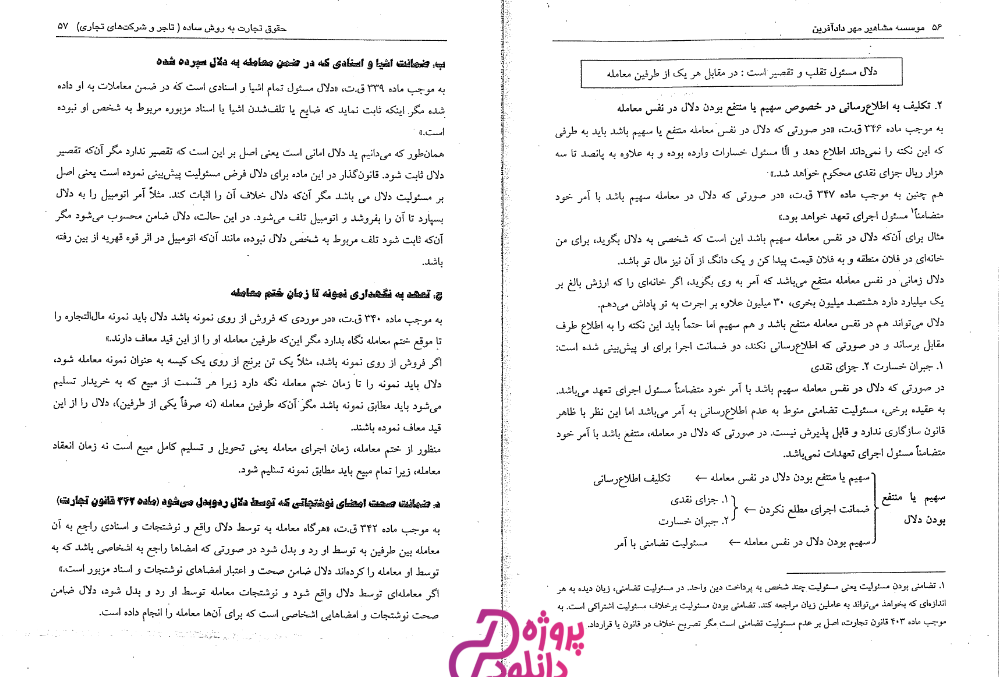 ۵۶ موسسه مشاهیر مهر دادآفرین
دلال مسئول تقلب و تقصیر است : در مقابل هر یک از طرفین معامله
۲. تکلیف به اطلاع‌رسانی در خصوص سهیم یا منتفع بودن دلال در نفس معامله
به موجب ماده ۳۴۶ ق.ت، «در صورتی که دلال در نفس معامله منتفع یا سهیم باشد باید به طرفی
که این نکته را نمی‌داند اطلاع دهد و الّا مسئول خسارات وارده بوده و به علاوه به پانصد تا سه
هزار ریال جزای نقدی محکوم خواهد شد.»
هم چنین به موجب ماده ۳۴۷ ق.ت، «در صورتی که دلال در معامله سهیم باشد با آمر خود
متضامناً۱ مسئول اجرای تعهد خواهد بود.»
مثال برای آن‌که دلال در نفس معامله سهیم باشد این است که شخصی به دلال بگوید، برای من
خانه‌ای در فلان منطقه و به فلان قیمت پیدا کن و یک دانگ از آن نیز مال تو باشد.
دلال زمانی در نفس معامله منتفع می‌باشد که آمر به وی بگوید، اگر خانه‌ای را که ارزش بالغ بر
یک میلیارد دارد هشتصد میلیون بخری، ۳۰ میلیون علاوه بر اجرت به تو پاداش می‌دهم.
دلال می‌تواند هم در نفس معامله منتفع باشد و هم سهیم اما حتماً باید این نکته را به اطلاع طرف
مقابل برساند و در صورتی که اطلاع‌رسانی نکند، دو ضمانت اجرا برای او پیش‌بینی شده است:
۱. جبران خسارت ۲. جزای نقدی
در صورتی که دلال در نفس معامله سهیم باشد با آمر خود متضامناً مسئول اجرای تعهد می‌باشد.
به عقیده برخی، مسئولیت تضامنی منوط به عدم اطلاع‌رسانی به آمر می‌باشد اما این نظر با ظاهر
قانون سازگاری ندارد و قابل پذیرش نیست. در صورتی که دلال در معامله، منتفع باشد با آمر خود
متضامناً مسئول اجرای تعهدات نمی‌باشد.
سهیم یا منتفع بودن دلال در نفس معامله ← تکلیف اطلاع‌رسانی
سهیم یا منتفع
بودن دلال
ضمانت اجرای مطلع نکردن ←
۱. جزای نقدی
۲. جبران خسارت
سهیم بودن دلال در نفس معامله ← مسئولیت تضامنی با آمر
۱. تضامنی بودن مسئولیت یعنی مسئولیت چند شخص به پرداخت دین واحد. در مسئولیت تضامنی، زیان دیده به هر
اندازه‌ای که بخواهد می‌تواند به عاملین زیان مراجعه کند. تضامنی بودن مسئولیت برخلاف مسئولیت اشتراکی است. به
موجب ماده ۴۰۳ قانون تجارت، اصل بر عدم مسئولیت تضامنی است مگر تصریح خلاف در قانون یا قرارداد.
حقوق تجارت به روش ساده ( تاجر و شرکت‌های تجاری) ۵۷
ب. ضمانت اشیا و اسنادی که در ضمن معامله به دلال سپرده شده
به موجب ماده ۳۳۹ ق.ت، «دلال مسئول تمام اشیا و اسنادی است که در ضمن معاملات به او داده
شده مگر اینکه ثابت نماید که ضایع یا تلف‌شدن اشیا یا اسناد مزبوره مربوط به شخص او نبوده
است.»
همان‌طور که می‌دانیم ید دلال امانی است یعنی اصل بر این است که تقصیر ندارد مگر آن‌که تقصیر
دلال ثابت شود. قانون‌گذار در این ماده برای دلال فرض مسئولیت پیش‌بینی نموده است یعنی اصل
بر مسئولیت دلال می باشد مگر آن‌که دلال خلاف آن را اثبات کند. مثلاً آمر اتومبیل را به دلال
بسپارد تا آن را بفروشد و اتومبیل تلف می‌شود. در این حالت، دلال ضامن محسوب می‌شود مگر
آن‌که ثابت شود تلف مربوط به شخص دلال نبوده، مانند آن‌که اتومبیل در اثر قوه قهریه از بین رفته
باشد.
ج. تعهد به نگهداری نمونه تا زمان ختم معامله
به موجب ماده ۳۴۰ ق.ت، «در موردی که فروش از روی نمونه باشد دلال باید نمونه مال‌التجاره را
تا موقع ختم معامله نگاه بدارد مگر این‌که طرفین معامله او را از این قید معاف دارند.»
اگر فروش از روی نمونه باشد، مثلاً یک تن برنج از روی یک کیسه به عنوان نمونه معامله شود،
دلال باید نمونه را تا زمان ختم معامله نگه دارد زیرا هر قسمت از مبیع که به خریدار تسلیم
می‌شود باید مطابق نمونه باشد مگر آن‌که طرفین معامله (نه صرفاً یکی از طرفین)، دلال را از این
قید معاف نموده باشند.
منظور از ختم معامله، زمان اجرای معامله یعنی تحویل و تسلیم کامل مبیع است نه زمان انعقاد
معامله، زیرا تمام مبیع باید مطابق نمونه تسلیم شود.
د. ضمانت صحت امضای نوشتجاتی که توسط دلال ردوبدل می‌شود (ماده ۳۴۲ قانون تجارت)
به موجب ماده ۳۴۲ ق.ت، «هرگاه معامله به توسط دلال واقع و نوشتجات و اسنادی راجع به آن
معامله بین طرفین به توسط او رد و بدل شود در صورتی که امضاها راجع به اشخاصی باشد که به
توسط او معامله را کرده‌اند دلال ضامن صحت و اعتبار امضاهای نوشتجات و اسناد مزبور است.»
اگر معامله‌ای توسط دلال واقع شود و نوشتجات معامله توسط او رد و بدل شود، دلال ضامن
صحت نوشتجات و امضاهایی اشخاصی است که برای آن‌ها معامله را انجام داده است.
پروژه
دانلود